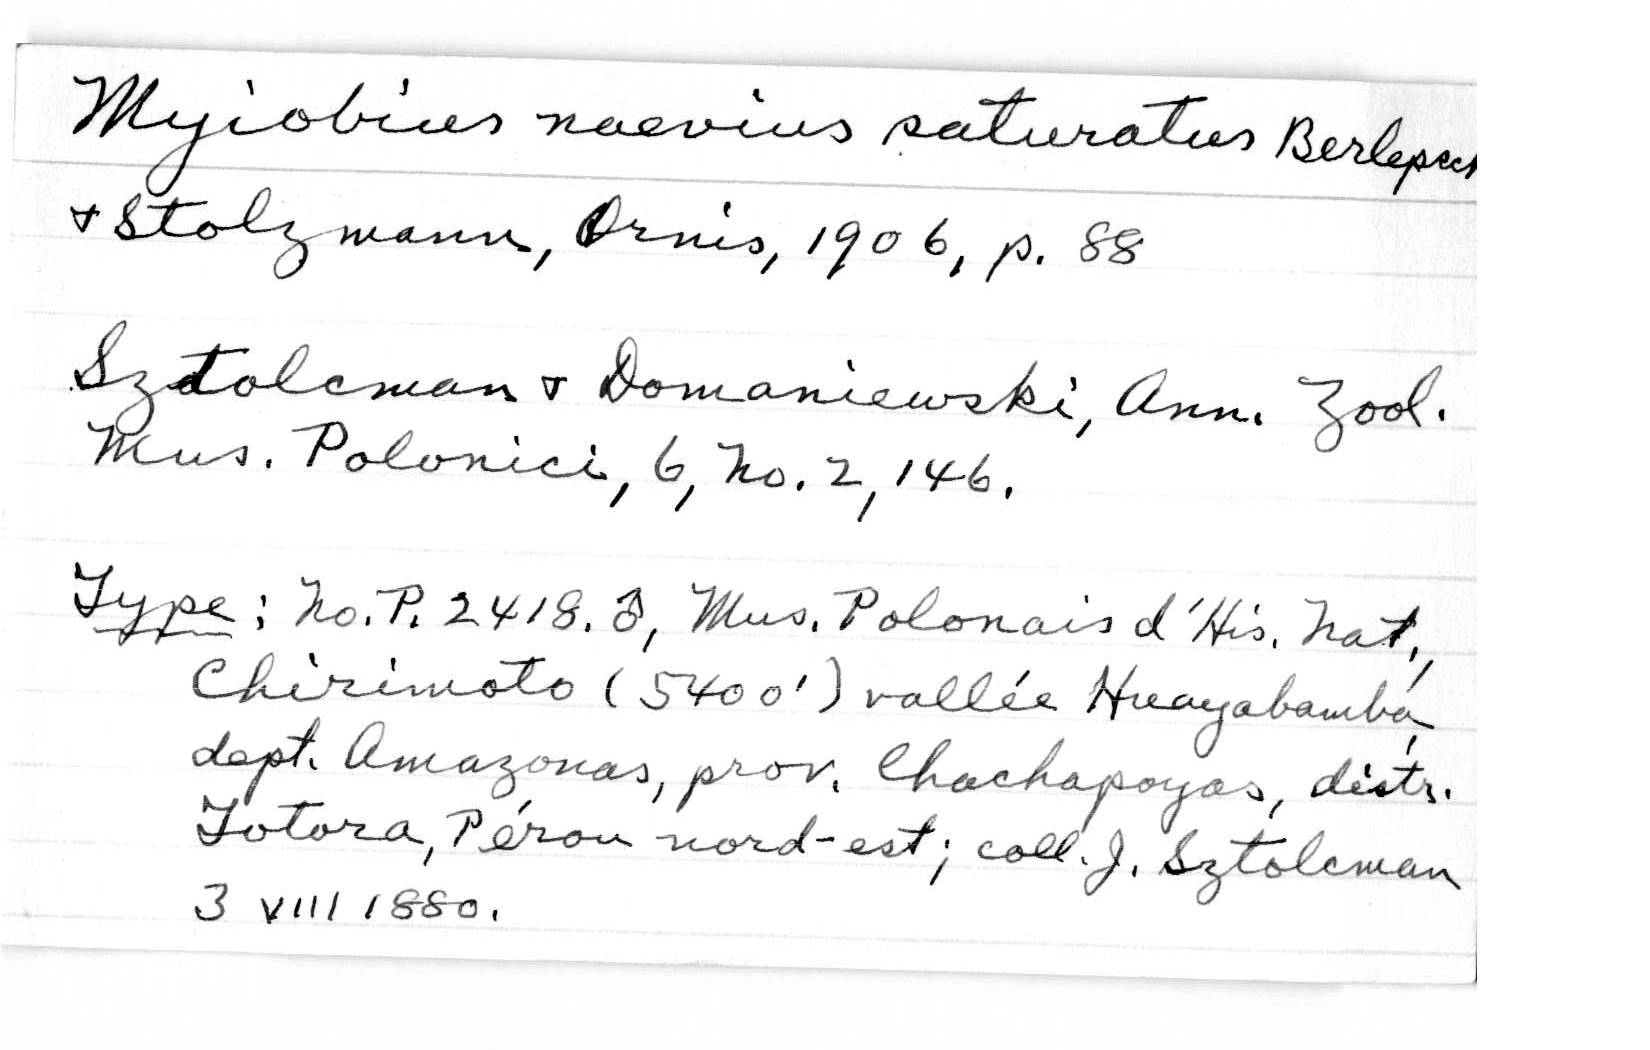 Myiobius naevius saturatus Berlepsch
& Stolzmann, Ornis, 1906, p. 88
Sztolcman & Domaniewski, Ann. Zool.
Mus. Polonici, 6, No. 2, 146.
Type: No. P. 2418. ♂, Mus. Polonais d'His. Nat.,
Chirimoto (5400') vallée Huayabamba,
dept. Amazonas, prov. Chachapoyas, distr.
Totora, Pérou nord-est; coll. J. Sztolcman
3 VIII 1880.